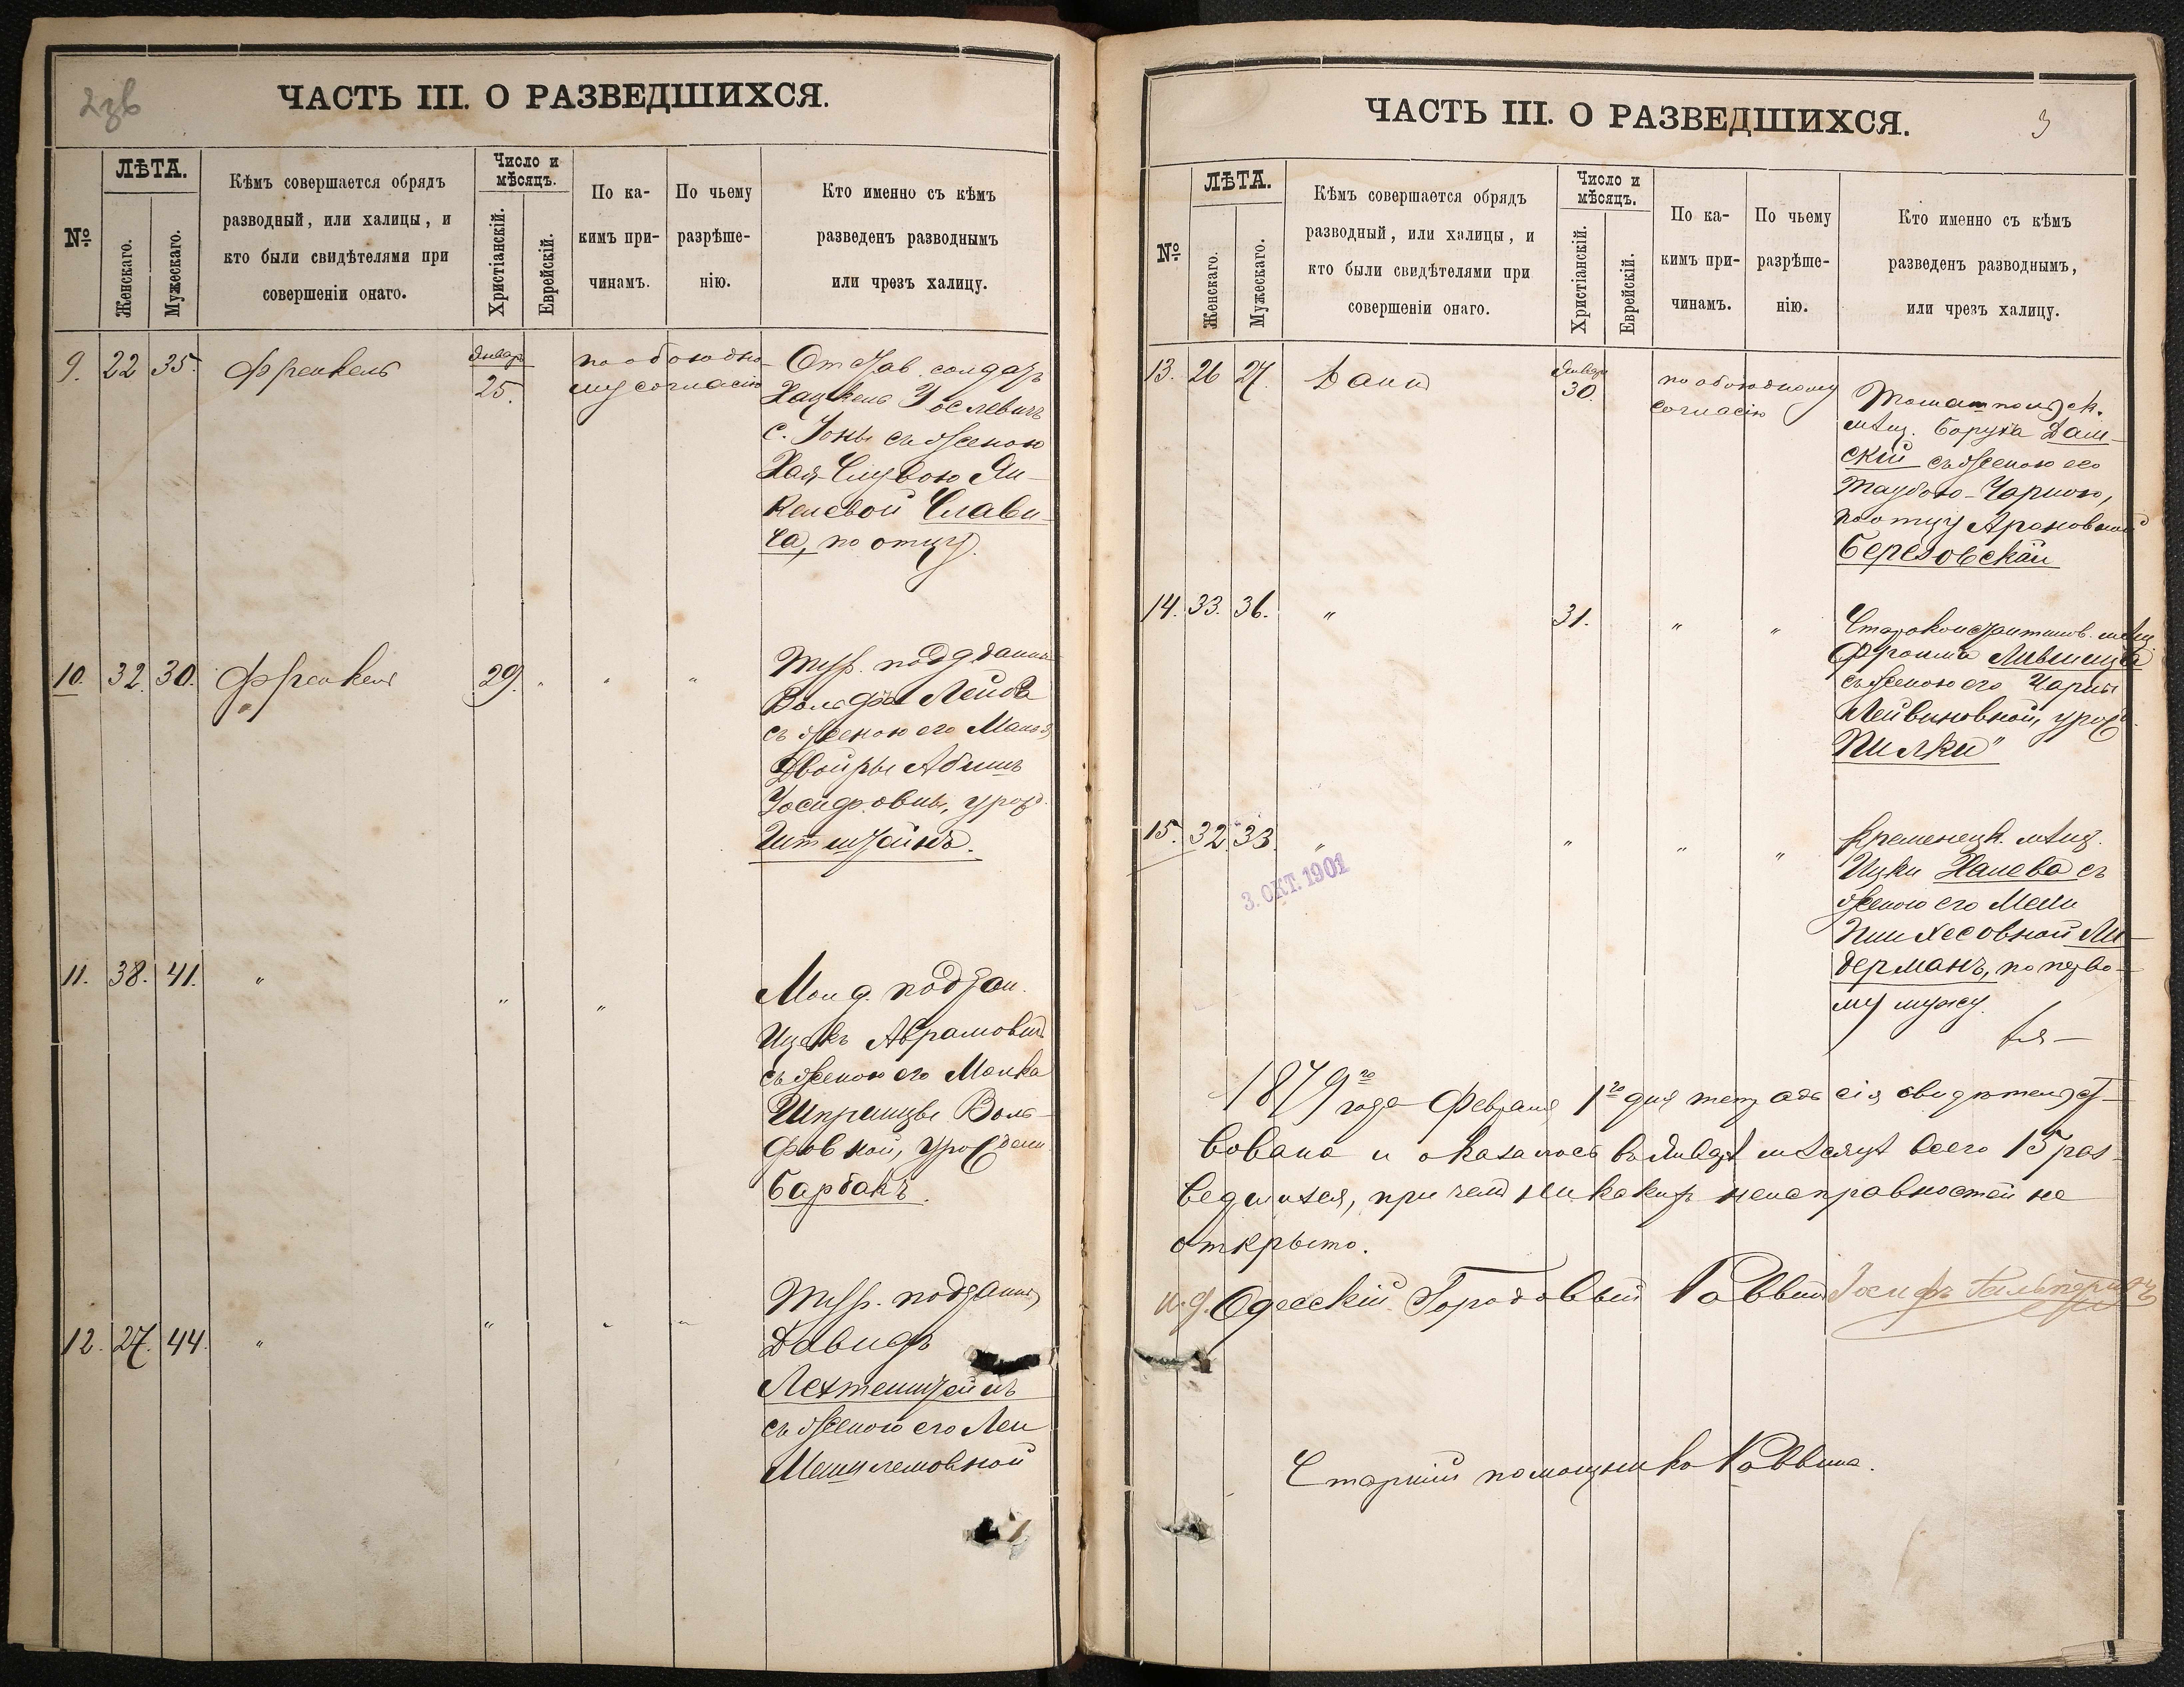 ЧАСТЬ III. О РАЗВЕДШИХСЯ.
№
ЛѢТА.
Женскаго.
Мужескаго.
Кѣмъ совершается обрядъ
разводный, или халицы, и
кто были свидѣтелями при
совершеніи онаго.
Число и
мѣсяцъ.
Христіанскій.
Еврейскій.
По ка-
кимъ при-
чинамъ.
По чьему
разрѣше-
нію.
Кто именно съ кѣмъ
разведенъ разводнымъ
или чрезъ халицу.
9. 22 35. Френкель
Январ
25.
по обоюдно-
му согласію
Отстав. солдатъ
Хацкель Іослевичъ
с. Іоны съ женою
Хая-Слувою Ян-
келевой Слави-
ча, по отцу.
10. 32. 30. Френкель 29. " " "
подданн
Вольфъ
съ женою его
Двойры
Іосифовны, урож.
Итштейнъ.
11. 38. 41. " " "
Молд. поддан.
Ицекъ Аврамовичъ
съ женою его Малка
Шпринцы Воль-
фовной, урожден
Барбакъ.
12. 27. 44. " " " "
поддан
Давидъ
Лехтенштейнъ
съ женою его Леи
Мешилемовной
ЧАСТЬ III. О РАЗВЕДШИХСЯ.
3
№
ЛѢТА.
Женскаго.
Мужескаго.
Кѣмъ совершается обрядъ
разводный, или халицы, и
кто были свидѣтелями при
совершеніи онаго.
Число и
мѣсяцъ.
Христіанскій.
Еврейскій.
По ка-
кимъ при-
чинамъ.
По чьему
разрѣше-
нію.
Кто именно съ кѣмъ
разведенъ разводнымъ,
или чрезъ халицу.
13. 26 27.
Январ
30.
по обоюдному
согласію
Томашпольск.
мѣщ. Боруха Даш-
скій съ женою его
Таубою-Чарною,
по отцу Ароновной
Березовской
14. 33. 36. " 31. " "
Староконстантинов. мѣщ
Фроима Лившица
съ женою его Чарны
Лейвиковной, урожд.
Пилки"
15. 32. 33. " " " "
3. ОКТ. 1901
Кременецк. мѣщ.
Ицки Халева съ
женою его
Пинхесовной Ли-
берманъ, по перво-
му мужу.
1879го года Февраля 1го дня тетрадь сія свидѣтельст-
вована и оказалось въ Январѣ мѣсяцѣ всего 15 раз-
ведшихся, при чемъ никакихъ неисправностей не
открыто.
И. д. Одесскій Городовый Раввинъ Іосифъ Гальперинъ
Старшій помощникъ Раввина.